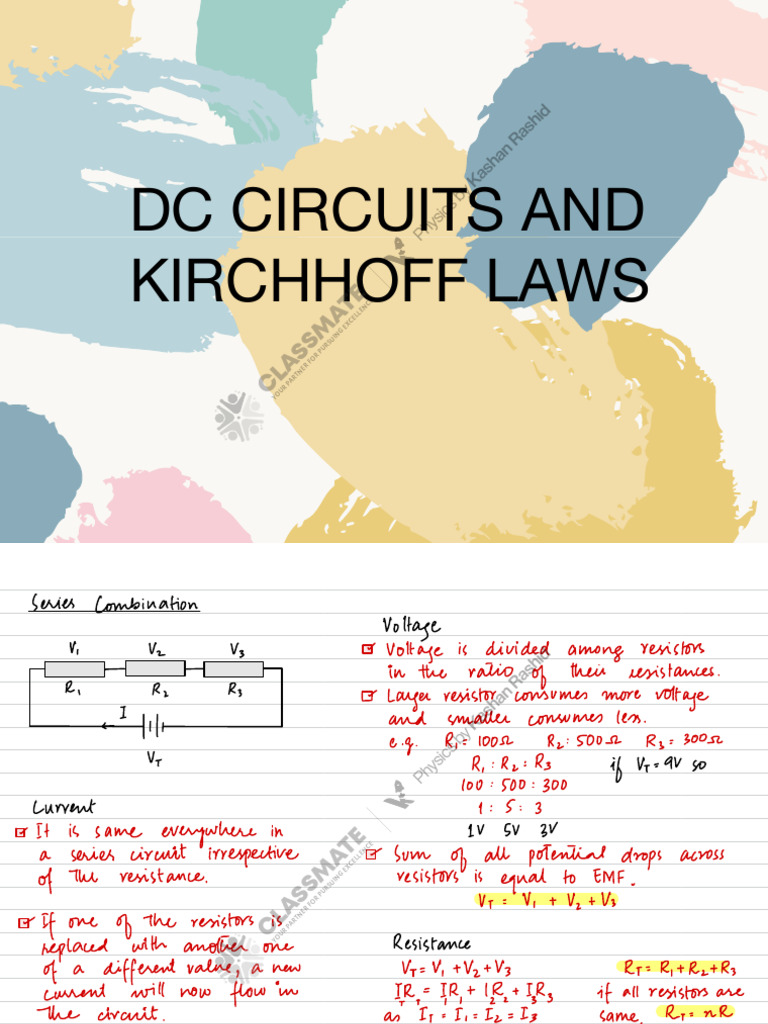 DC CIRCUITS AND
KIRCHHOFF LAWS
Physics by Kashan Rashid
CLASSMATE
YOUR PARTNER FOR PURSUING EXCELLENCE
Series Combination
V1 V2 V3
R1 R2 R3
I
VT
Current
It is same everywhere in
a series circuit irrespective
of the resistance.
If one of the resistors is
replaced with another one
of a different value, a new
current will now flow in
the circuit.
Voltage
Voltage is divided among resistors
in the ratio of their resistances.
Larger resistor consumes more voltage
and smaller consumes less.
e.g. R1 = 100Ω R2 : 500Ω R3 = 300Ω
R1 : R2 : R3 if VT = 9V so
100 : 500 : 300
1 : 5 : 3
1V 5V 3V
Sum of all potential drops across
resistors is equal to EMF.
VT = V1 + V2 + V3
Resistance
VT = V1 + V2 + V3
ITRT = I1R1 + I2R2 + I3R3
as IT = I1 = I2 = I3
RT = R1 + R2 + R3
if all resistors are
same. RT = nR
Physics by Kashan Rashid
CLASSMATE
YOUR PARTNER FOR PURSUING EXCELLENCE